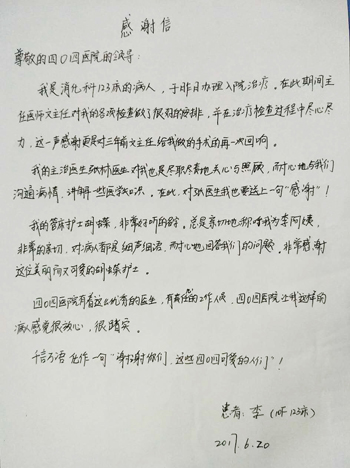 感谢信
尊敬的四〇四医院的领导:
我是消化科123床的病人,于昨日办理入院治疗。在此期间主
任医师文主任对我的各项检查做了很好的安排,并在治疗检查过程中尽心尽
力,这一声感谢更是对三年前文主任给我做的手术的再一次回响。
我的主治医生张林医生对我也是尽职尽责地关心与照顾,耐心地与我们
沟通病情,讲解一些医学知识。在此,对张医生我也要送上一句"感谢"!
我的管床护士胡蝶,非常好听的名字。总是亲切地称呼我为李阿姨,
非常的亲切,对病人都是细声细语,耐心地回答我们的问题。非常感谢
这位美丽而又可爱的胡蝶护士。
四〇四医院有着这么优秀的医生,有责任的工作人员,四〇四医院让我这样的
病人感觉很放心,很踏实。
千言万语化作一句"谢谢你们,这些四〇四可爱的人们"!
患者:李(消123床)
2017.6.20